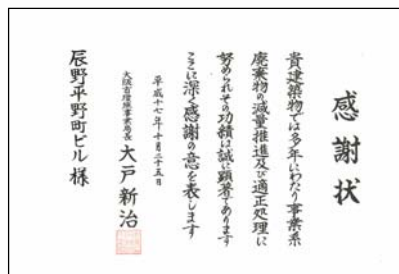 感謝状
貴建築物では多年にわたり事業系
廃棄物の減量推進及び適正処理に
努められその功績は誠に顕著であります
ここに深く感謝の意を表します
平成十七年十月二十五日
大阪市環境事業局長 大戸新治
辰野平野町ビル様